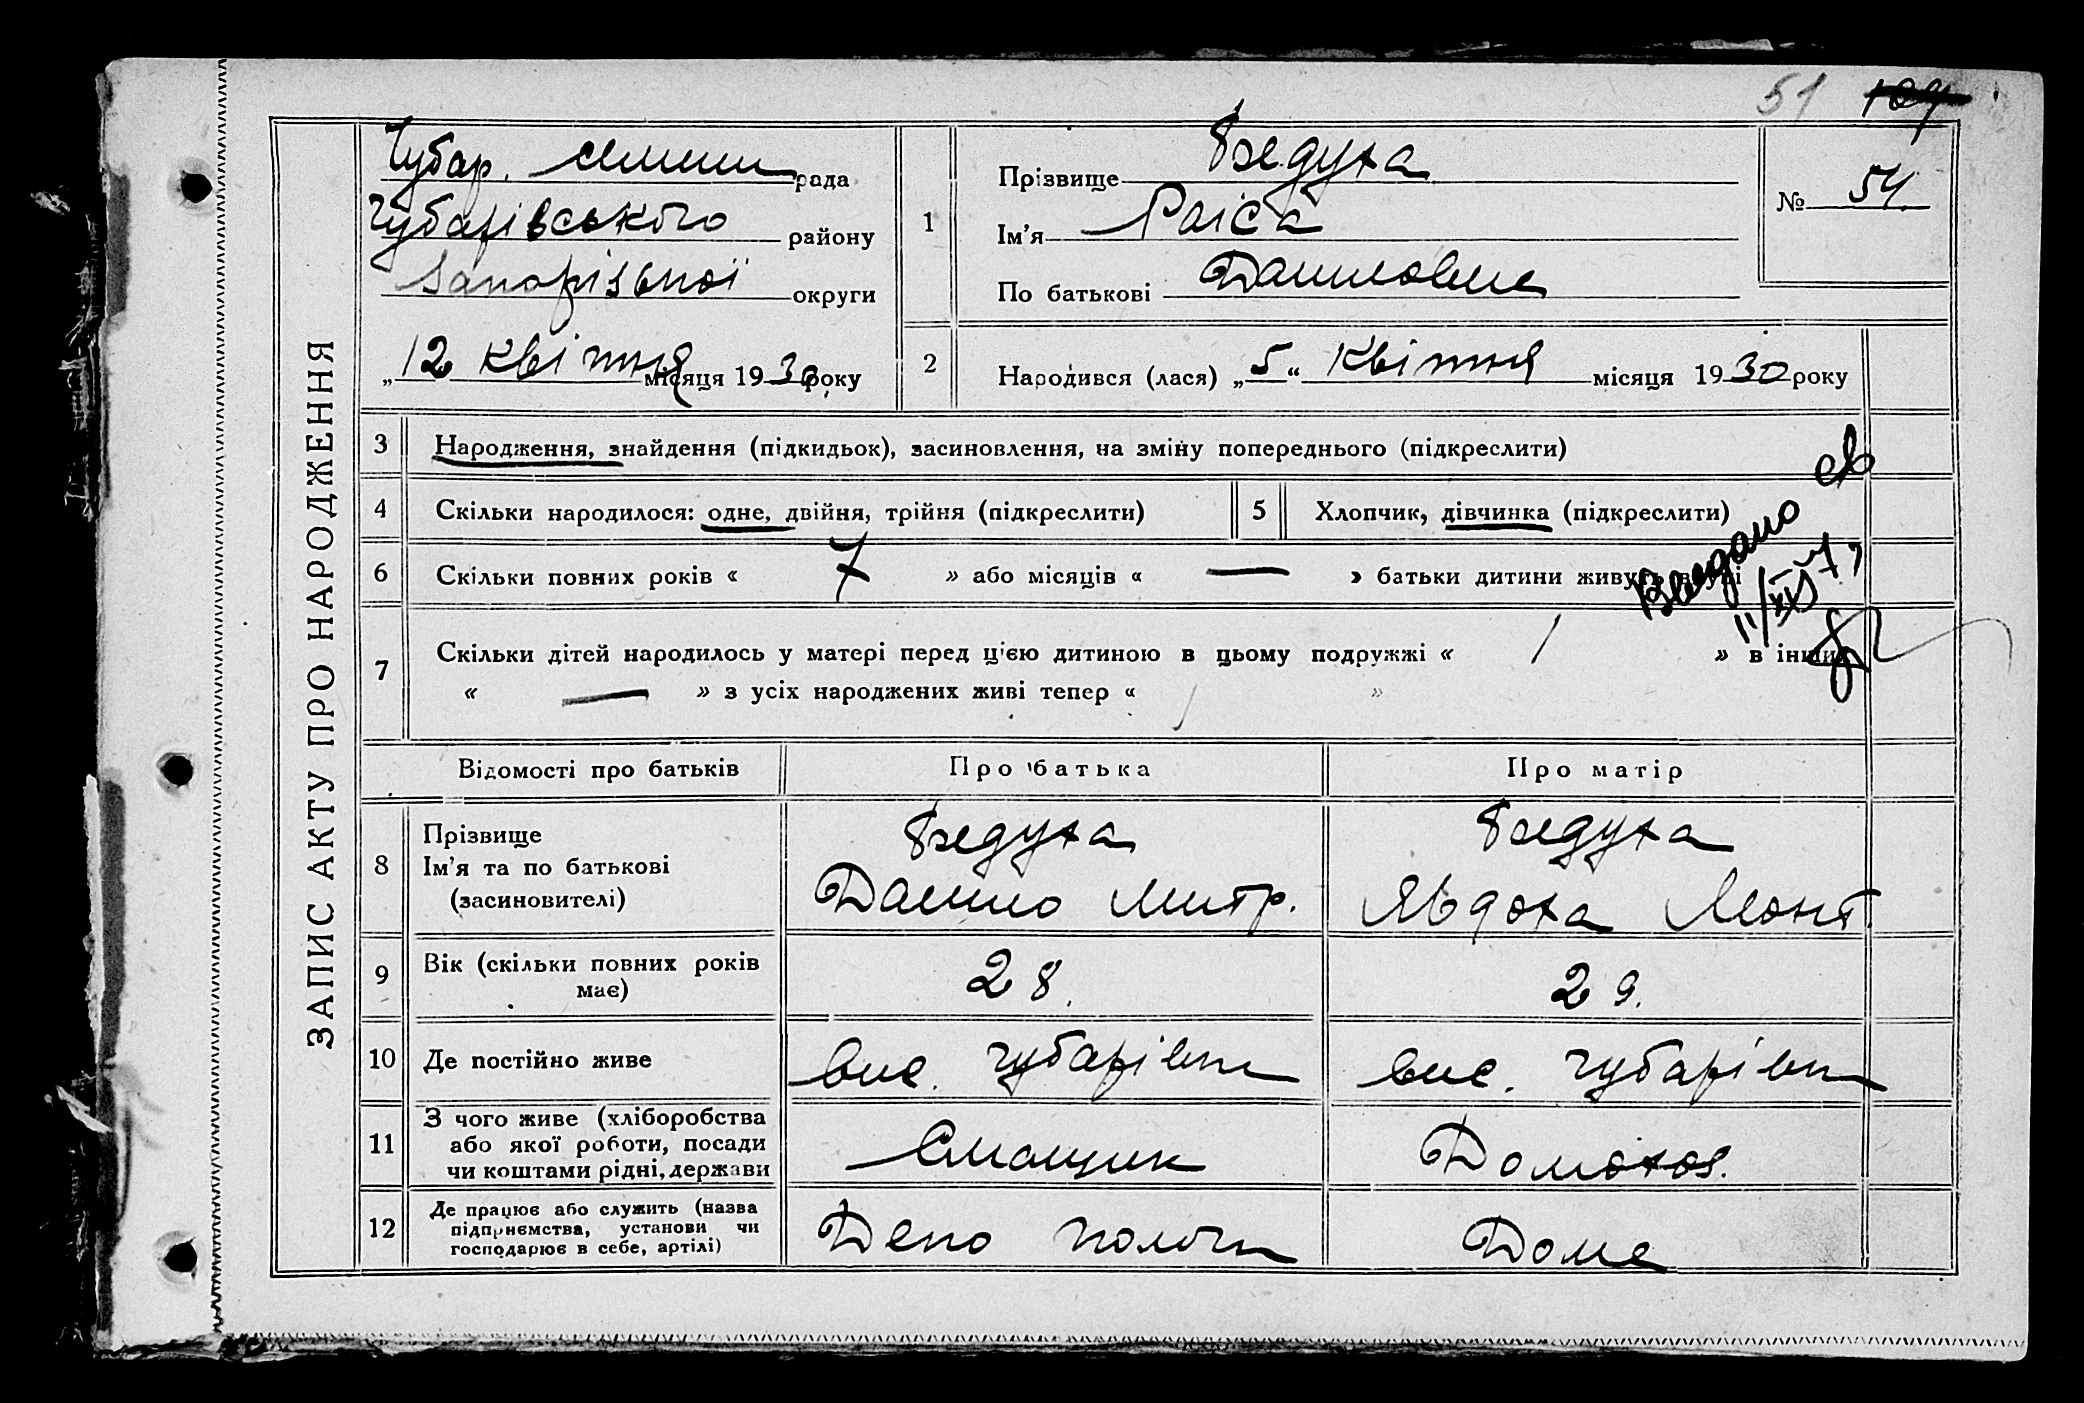 51 109
ЗАПИС АКТУ ПРО НАРОДЖЕННЯ
Чубар. рада
Чубарівського району
Запорізької округи
„12 квітня місяця 1930 року
1
Прізвище Бедуха
Ім’я Раіса
По батькові Даниловна
№ 54.
2
Народився (лася) „5“ Квітня місяця 1930 року
3 Народження, знайдення (підкидьок), засиновлення, на зміну попереднього (підкреслити)
4 Скільки народилося: одне, двійня, трійня (підкреслити)
5 Хлопчик, дівчинка (підкреслити)
6 Скільки повних років « 7 » або місяців « — » батьки дитини живуть в парі
7 Скільки дітей народилось у матері перед цією дитиною в цьому подружжі « 1 » в інших
« — » з усіх народжених живі тепер « 1 »
Видано св
Відомості про батьків Про батька Про матір
8 Прізвище
Ім’я та по батькові
(засиновителі)
Бедуха
Данило Митр.
Бедуха
Явдоха
9 Вік (скільки повних років
має)
28.
29.
10 Де постійно живе
вис. Чубарівка
вис. Чубарівка
11 З чого живе (хліборобства
або якої роботи, посади
чи коштами рідні, держави
Смащик
Домохоз.
12 Де працює або служить (назва
підприємства, установи чи
господарює в себе, артілі)
Депо Пологи
Дома